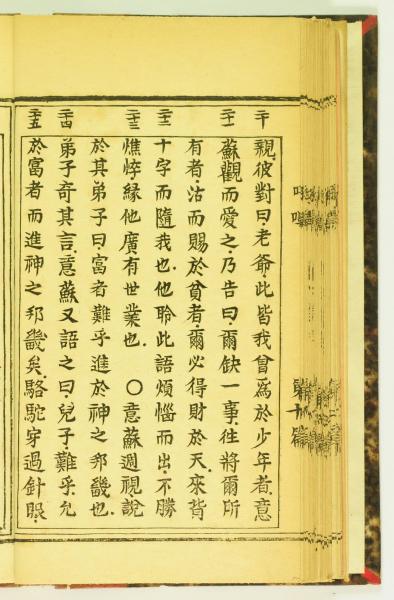 二十 親彼對曰老爺此皆我曾爲於少年者意
二一 蘇觀而愛之乃告曰爾缺一事往將爾所
有者沽而賜於貧者爾必得財於天來背
二二 十字而隨我也他聆此語煩惱而出不勝
二三 憔悴緣他廣有世業也 ○意蘇週視說
於其弟子曰富者難乎進於神之邦畿也
二四 弟子奇其言意蘇又語之曰兒子難乎允
二五 於富者而進神之邦畿矣駱駝穿過針眼
第十篇